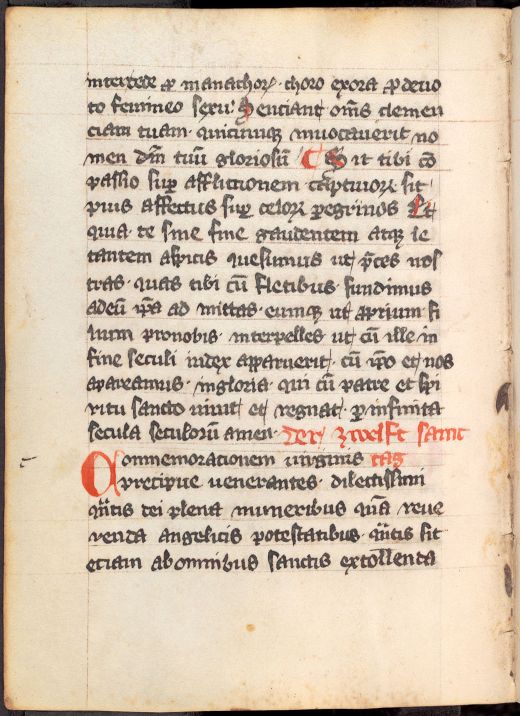 intercede ꝓ monachoꝝ · choro exora ꝓ deuo
to femineo sexu · Senciant om̅s clemen
ciam tuam · quicumqꝫ inuocauerit no
men dm̅ tuu̅ gloriosu̅ Sit tibi co̅
passio suꝑ afflictionem captiuoꝝ sit
pius affectus suꝑ celoꝝ ꝑegrinos Et
qua te sine fine gaudentem atqꝫ le
tantem aspicis quesumus ut p̅ces nos
tras · quas tibi cu̅ fletibus · fundimus
ad eu̅ ip̅a ad mittas · eumqꝫ ut xp̅ium fi
lium pronobis · interpelles ut cu̅ ille in
fine seculi iudex apparuerit · cu̅ ip̅o et nos
apareamus · in gloria · qui cu̅ patre et spi
ritu sancto uiuit et regnat · ꝑ infinita
secula seculoru̅ amen · Der zwelft samt
Conmemorationem uirginis tag
precipue uenerantes · dilectissimi
q̅tis dei plena muneribus qu̅a reue
renda angelicis potestatibus · q̅tis sit
etiam ab omnibus sanctis extollenta